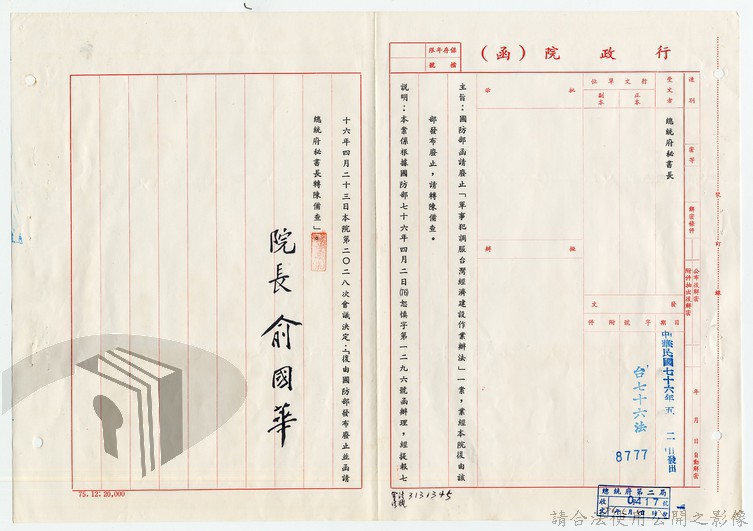 行政院（函）
保存年限
檔號
速別
密等
解密條件
公布後解密
附件抽出後解密
年 月 日自動解密
受文者
總統府秘書長
行文單位
正本
副本
批示
擬辦
發文
日期
字號
附件
中華民國七十六年五月二日發出
台七十六法
8777
主旨：國防部函請廢止「軍事犯調服台灣經濟建設作業辦法」一案，業經本院後由該
部發布廢止，請轉陳備查。
說明：本案係根據國防部七十六年四月二日(76)恕慎字第一二九六號函辦理，經提報七
十六年四月二十三日本院第二〇二八次會議決定：「後由國防部發布廢止並函請
總統府秘書長轉陳備查」。
院長 俞國華
75.12.20,000
3131345
總統府第二局
收文
0417
號
訂
線
請合法使用公開之影像